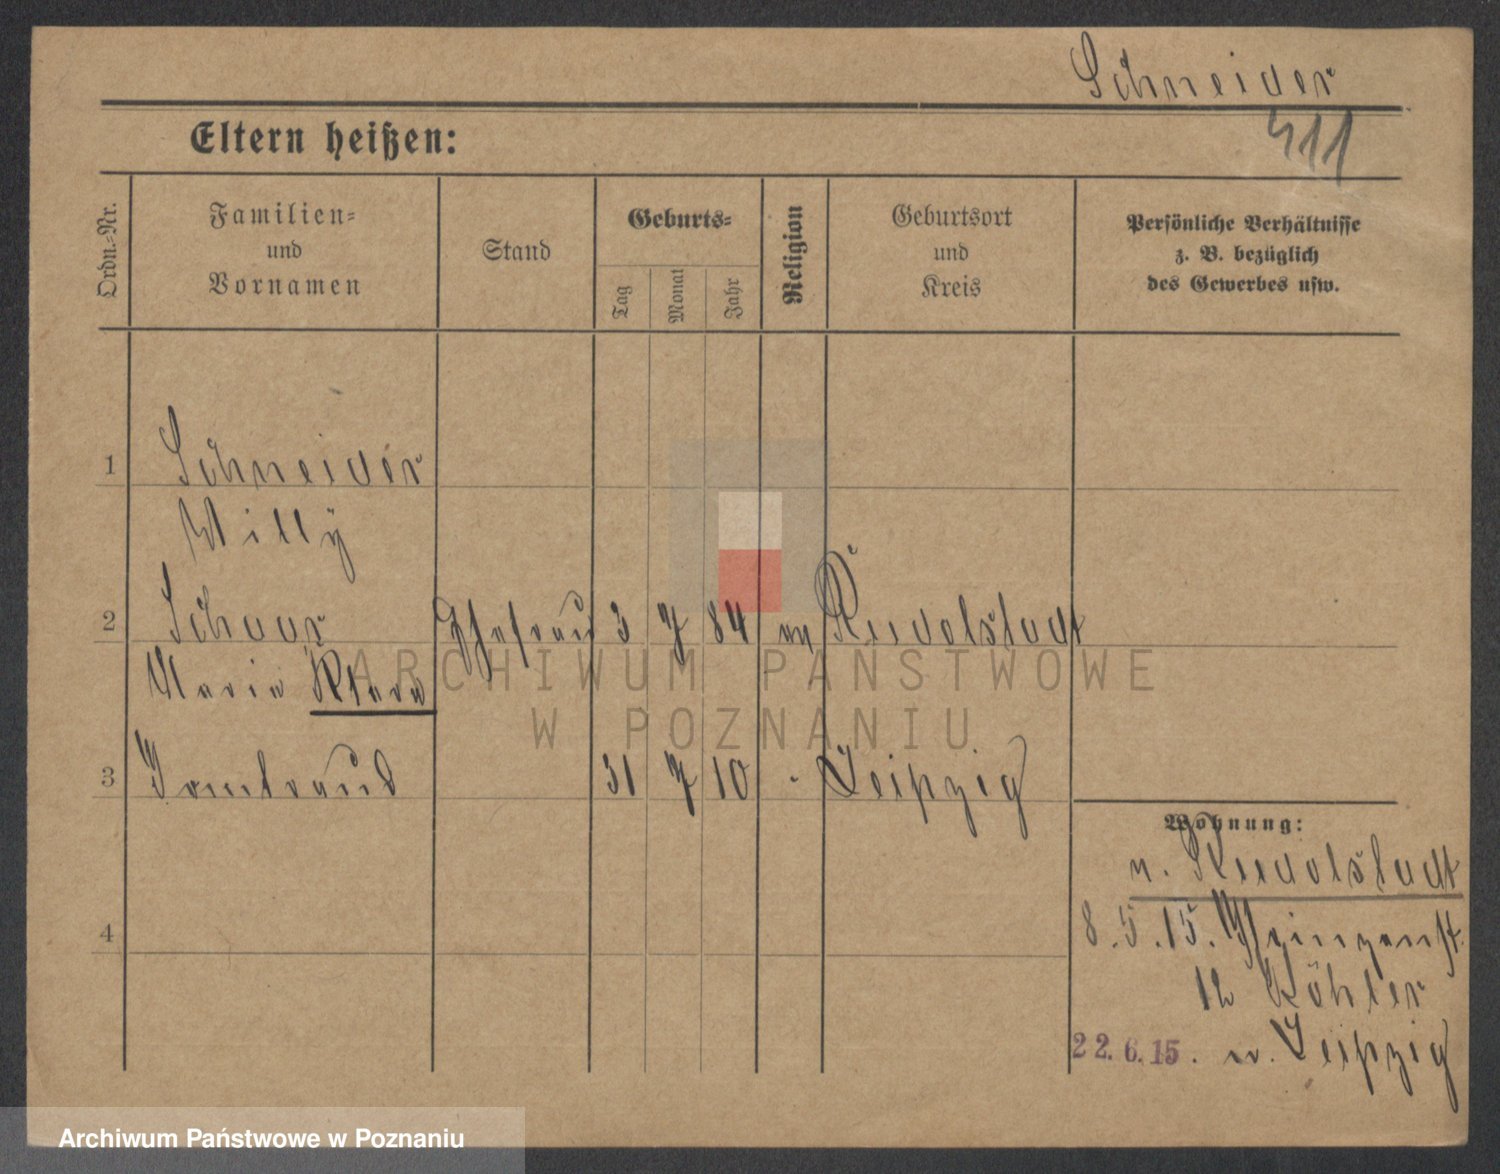 Schneider
411
Eltern heißen:
Ordn.-Nr.
Familien-
und
Vornamen
Stand
Geburts-
Tag
Monat
Jahr
Religion
Geburtsort
und
Kreis
Persönliche Verhältnisse
z. B. bezüglich
des Gewerbes usw.
1 Schneider
Willÿ
2 Schaar Ehefrau 3 7 84 ev Rudolstadt
Maria Klara
3 31 7 10 Leipzig
4
Wohnung:
v. Rudolstadt
8.5.15. Prinzenst.
12 Köhler
22.6.15. n. Leipzig
ARCHIWUM PAŃSTWOWE
W POZNANIU
Archiwum Państwowe w Poznaniu